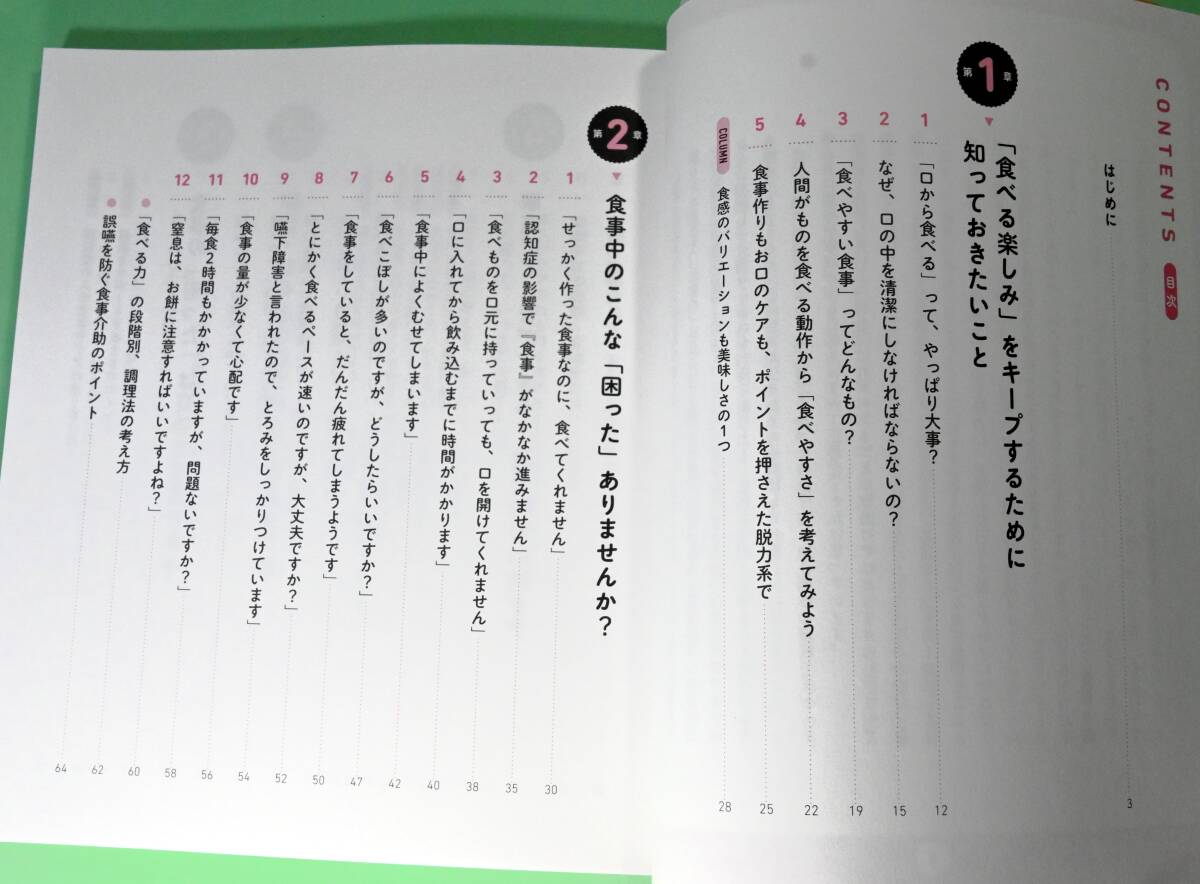 CONTENTS 目次
はじめに 3
第1章 「食べる楽しみ」をキープするために
知っておきたいこと
1 「口から食べる」って、やっぱり大事？ 12
2 なぜ、口の中を清潔にしなければならないの？ 15
3 「食べやすい食事」ってどんなもの？ 19
4 人間がものを食べる動作から「食べやすさ」を考えてみよう 22
5 食事作りもお口のケアも、ポイントを押さえた脱力系で 25
COLUMN 食感のバリエーションも美味しさの1つ 28
第2章 食事中のこんな「困った」ありませんか？
1 「せっかく作った食事なのに、食べてくれません」 30
2 「認知症の影響で『食事』がなかなか進みません」 35
3 「食べものを口元に持っていっても、口を開けてくれません」 38
4 「口に入れてから飲み込むまでに時間がかかります」 40
5 「食事中によくむせてしまいます」 42
6 「食べこぼしが多いのですが、どうしたらいいですか？」 47
7 「食事をしていると、だんだん疲れてしまうようです」 50
8 「とにかく食べるペースが速いのですが、大丈夫ですか？」 52
9 「嚥下障害と言われたので、とろみをしっかりつけています」 54
10 「食事の量が少なくて心配です」 56
11 「毎食2時間もかかっていますが、問題ないですか？」 58
12 「窒息は、お餅に注意すればいいですよね？」 60
● 「食べる力」の段階別、調理法の考え方 62
● 誤嚥を防ぐ食事介助のポイント 64